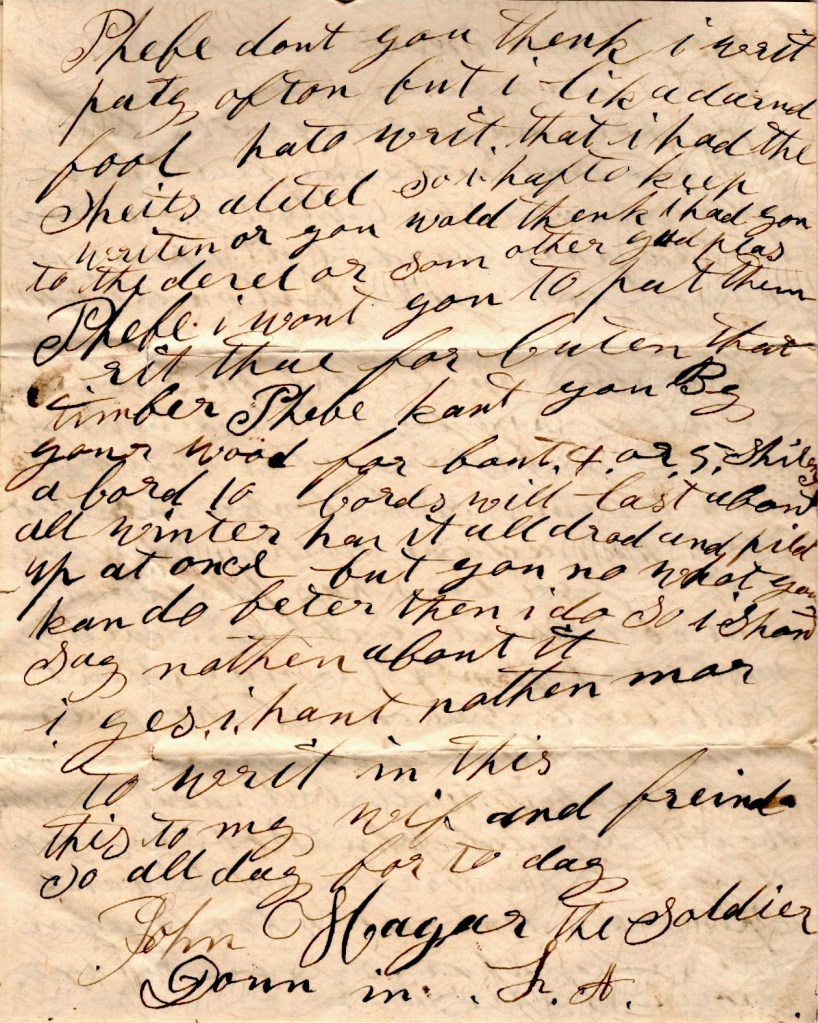 Phebe dont you thenk i writ
paty ofton but i lik a darnd
fool hato writ. that i had the
Sheits a litel so i hafto keep
writen or you wold thenk i had gon
to the devel or som other god plas
Phebe i wont you to put them
rit thue for buten that
timber Phebe kant you By
your wood for bout. 4. or. 5. Shilings
a bord 10 bords will last about
all winter hav it all drod and pild
up at once but you no what you
kan do beter then i do so i shant
say nothen about it
i ges. i. hant nothen mor
to writ in this
this to my wif and freind
so all day for to day
John Hagar the Soldier
Down in. L. A.